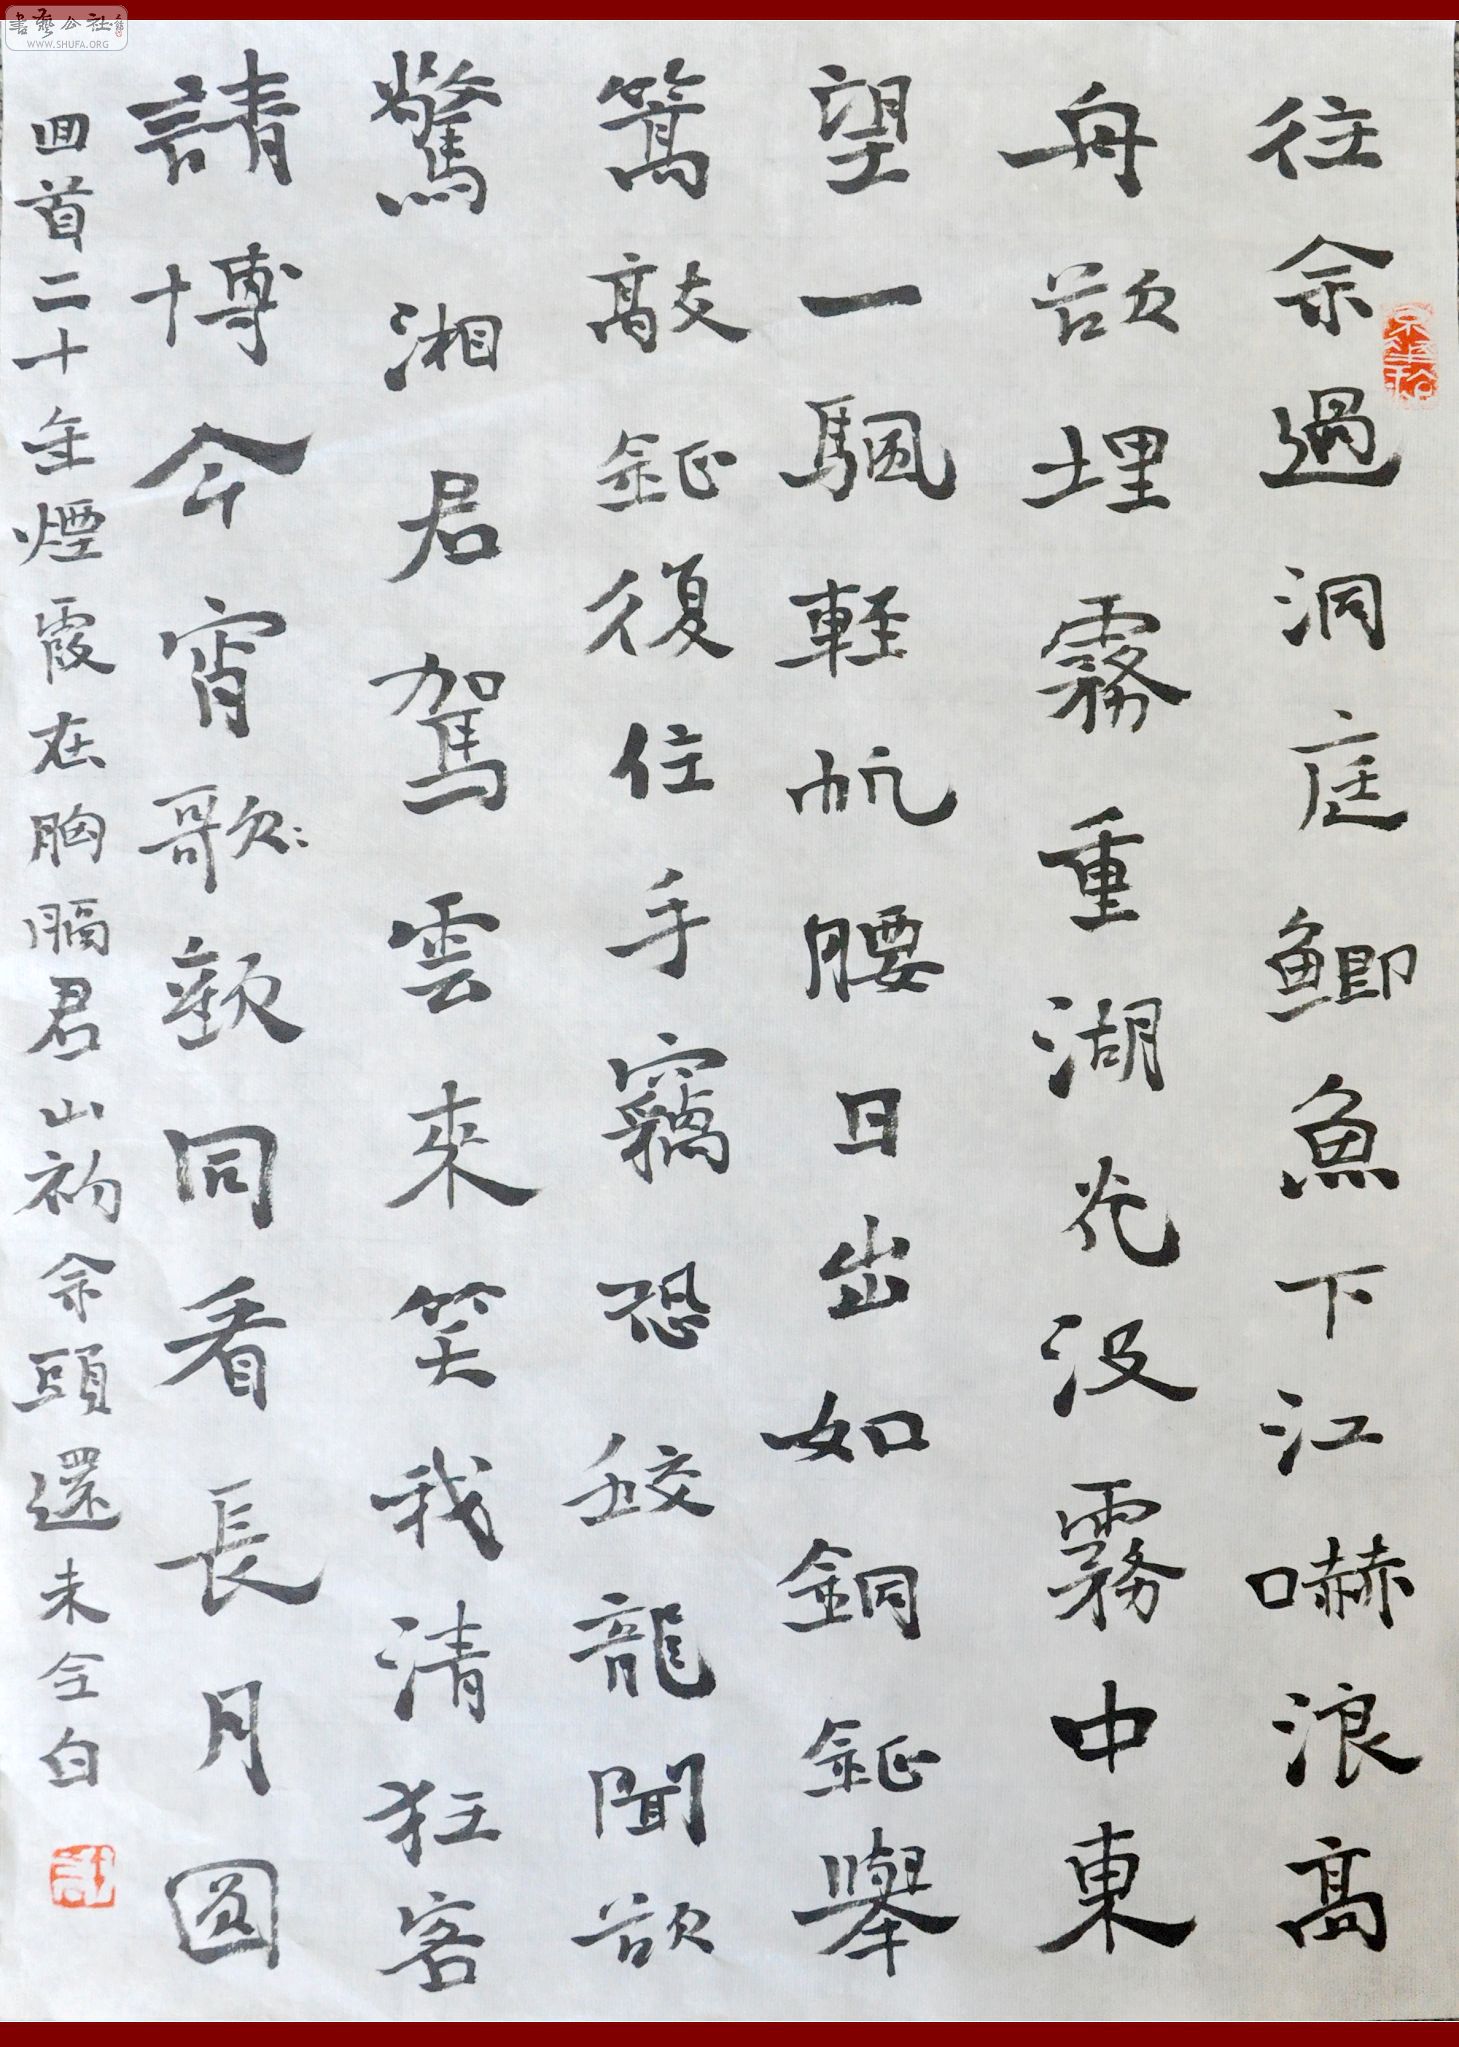 往余過洞庭鯽魚下江嚇浪高
舟欲埋霧重湖光没霧中東
望一颿輕帆腰日出如銅鉦舉
篙敲鉦復住手竊恐蛟龍聞欲
驚湘君駕雲來笑我清狂客
請博今宵歌歡同看長月圓
回首二十年煙霞在胸膈君山初余頭還未全白
書藝公社
WWW.SHUFA.ORG